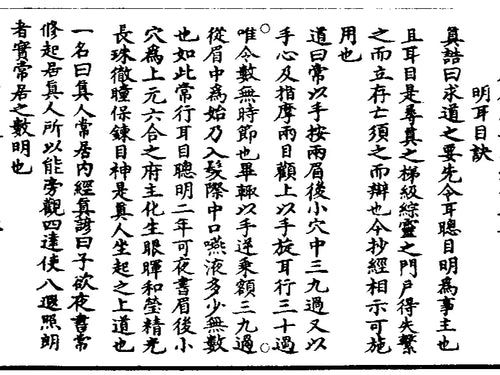 明耳目訣
真誥曰求道之要先令耳聰目明為事主也
且耳目是尋真之梯級綜靈之門戶得失繫
之而立存亡須之而辯也今抄經相示可施
用也
道曰常以手按兩眉後小穴中三九過又以
手心及指摩兩目顴上以手旋耳行三十過
唯令數無時節也畢輒以手逆乘額三九過
從眉中為始乃入髮際中口嚥液多少無數
也如此常行耳目聰明二年可夜書眉後小
穴為上元六合之府主化生眼暉和瑩精光
長珠徹瞳保鍊目神是真人坐起之上道也
一名曰真人常居內經真諺曰子欲夜書常
修起居真人所以能旁觀四達使八遐照朗
者實常居之數明也